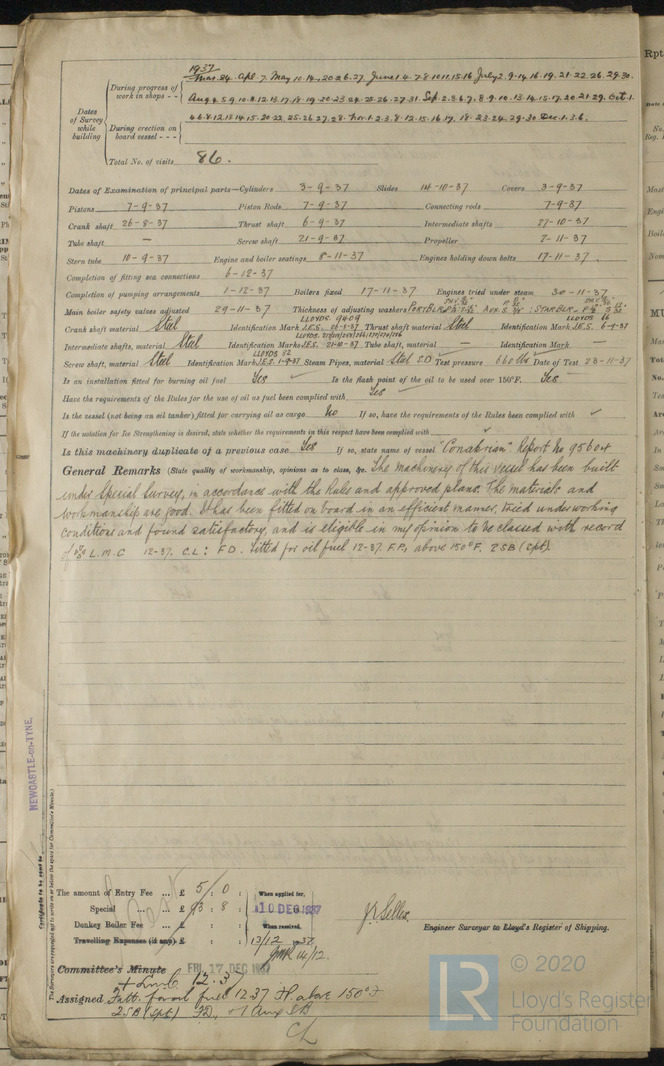 1937
Mar. 24. Apl. 7. May 10. 14. 20. 26. 27. June 1. 4. 7. 8. 10. 11. 15. 16 July 2. 9. 14. 16. 19. 21. 22. 26. 29. 30.
During progress of work in shops - -
Aug 4. 5. 9. 10. 12. 13. 17. 18. 19. 20. 23. 24. 25. 26. 27. 31. Sep. 2. 3. 6. 7. 8. 9. 10. 13. 14. 15. 17. 20. 21. 29. Oct. 1.
Dates of Survey while building
4. 6. 8. 12. 13. 14. 15. 20. 22. 25. 26. 27. 28. Nov. 1. 2. 3. 8. 12. 15. 16. 17. 18. 23. 24. 29. 30 Dec. 1. 3. 6.
During erection on board vessel - - -
Total No. of visits 86.
Dates of Examination of principal parts—Cylinders 3-9-37 Slides -10-37 Covers 3-9-37
Pistons 7-9-37 Piston Rods 7-9-37 Connecting rods 7-9-37
Crank shaft 26-8-37 Thrust shaft 6-9-37 Intermediate shafts 27-10-37
Tube shaft — Screw shaft 21-9-37 Propeller 2-11-37
Stern tube 10-9-37 Engine and boiler seatings 8-11-37 Engines holding down bolts 17-11-37
Completion of fitting sea connections 6-12-37
Completion of pumping arrangements 1-12-37 Boilers fixed 17-11-37 Engines tried under steam 30-11-37
Main boiler safety valves adjusted 29-11-37 Thickness of adjusting washers Port Blr
Crank shaft material Steel Identification Mark LLOYDS. 9409 J.E.S. Thrust shaft material Steel Identification Mark LLOYDS J.E.S. 6-9-37
Intermediate shafts, material Steel Identification Marks LLOYDS J.E.S. 21-10-37 Tube shaft, material — Identification Mark —
Screw shaft, material Steel Identification Mark LLOYDS J.E.S. Steam Pipes, material Steel S.D Test pressure 660 lbs Date of Test 23-11-37
Is an installation fitted for burning oil fuel Yes Is the flash point of the oil to be used over 150°F. Yes
Have the requirements of the Rules for the use of oil as fuel been complied with Yes
Is the vessel (not being an oil tanker) fitted for carrying oil as cargo No If so, have the requirements of the Rules been complied with ✓
If the notation for Ice Strengthening is desired, state whether the requirements in this respect have been complied with ✓
Is this machinery duplicate of a previous case Yes If so, state name of vessel "Conakrian". Report No 95604
General Remarks (State quality of workmanship, opinions as to class, &c. The machinery of this vessel has been built
under Special Survey, in accordance with the Rules and approved plans. The materials and
workmanship are good. It has been fitted on board in an efficient manner, tried under working
conditions and found satisfactory, and is eligible in my opinion to be classed with record
of L.M.C 12-37. C.L: F.D. Fitted for oil fuel 12-37. F.P. above 150°F. 2SB (Spt).
NEWCASTLE-on-TYNE.
Certificate to be sent to
(The Surveyors are requested not to write on or below the space for Committee's Minute.)
The amount of Entry Fee ... £ 5 : 0 : When applied for,
Special ... ... £ 93 : 8 : 10 DEC 1937
Donkey Boiler Fee ... £ : : When received,
Travelling Expenses (if any) £ : : 13/12 37
14/12.
J. Sellex.
Engineer Surveyor to Lloyd's Register of Shipping.
Committee's Minute FRI. 17 DEC 1937
+ Lmc 12.37
Assigned Fitt. for oil fuel 12.37 FP. above 150°F
2SB (Spt) FD,
CL
LR
© 2020
Lloyd's Register
Foundation